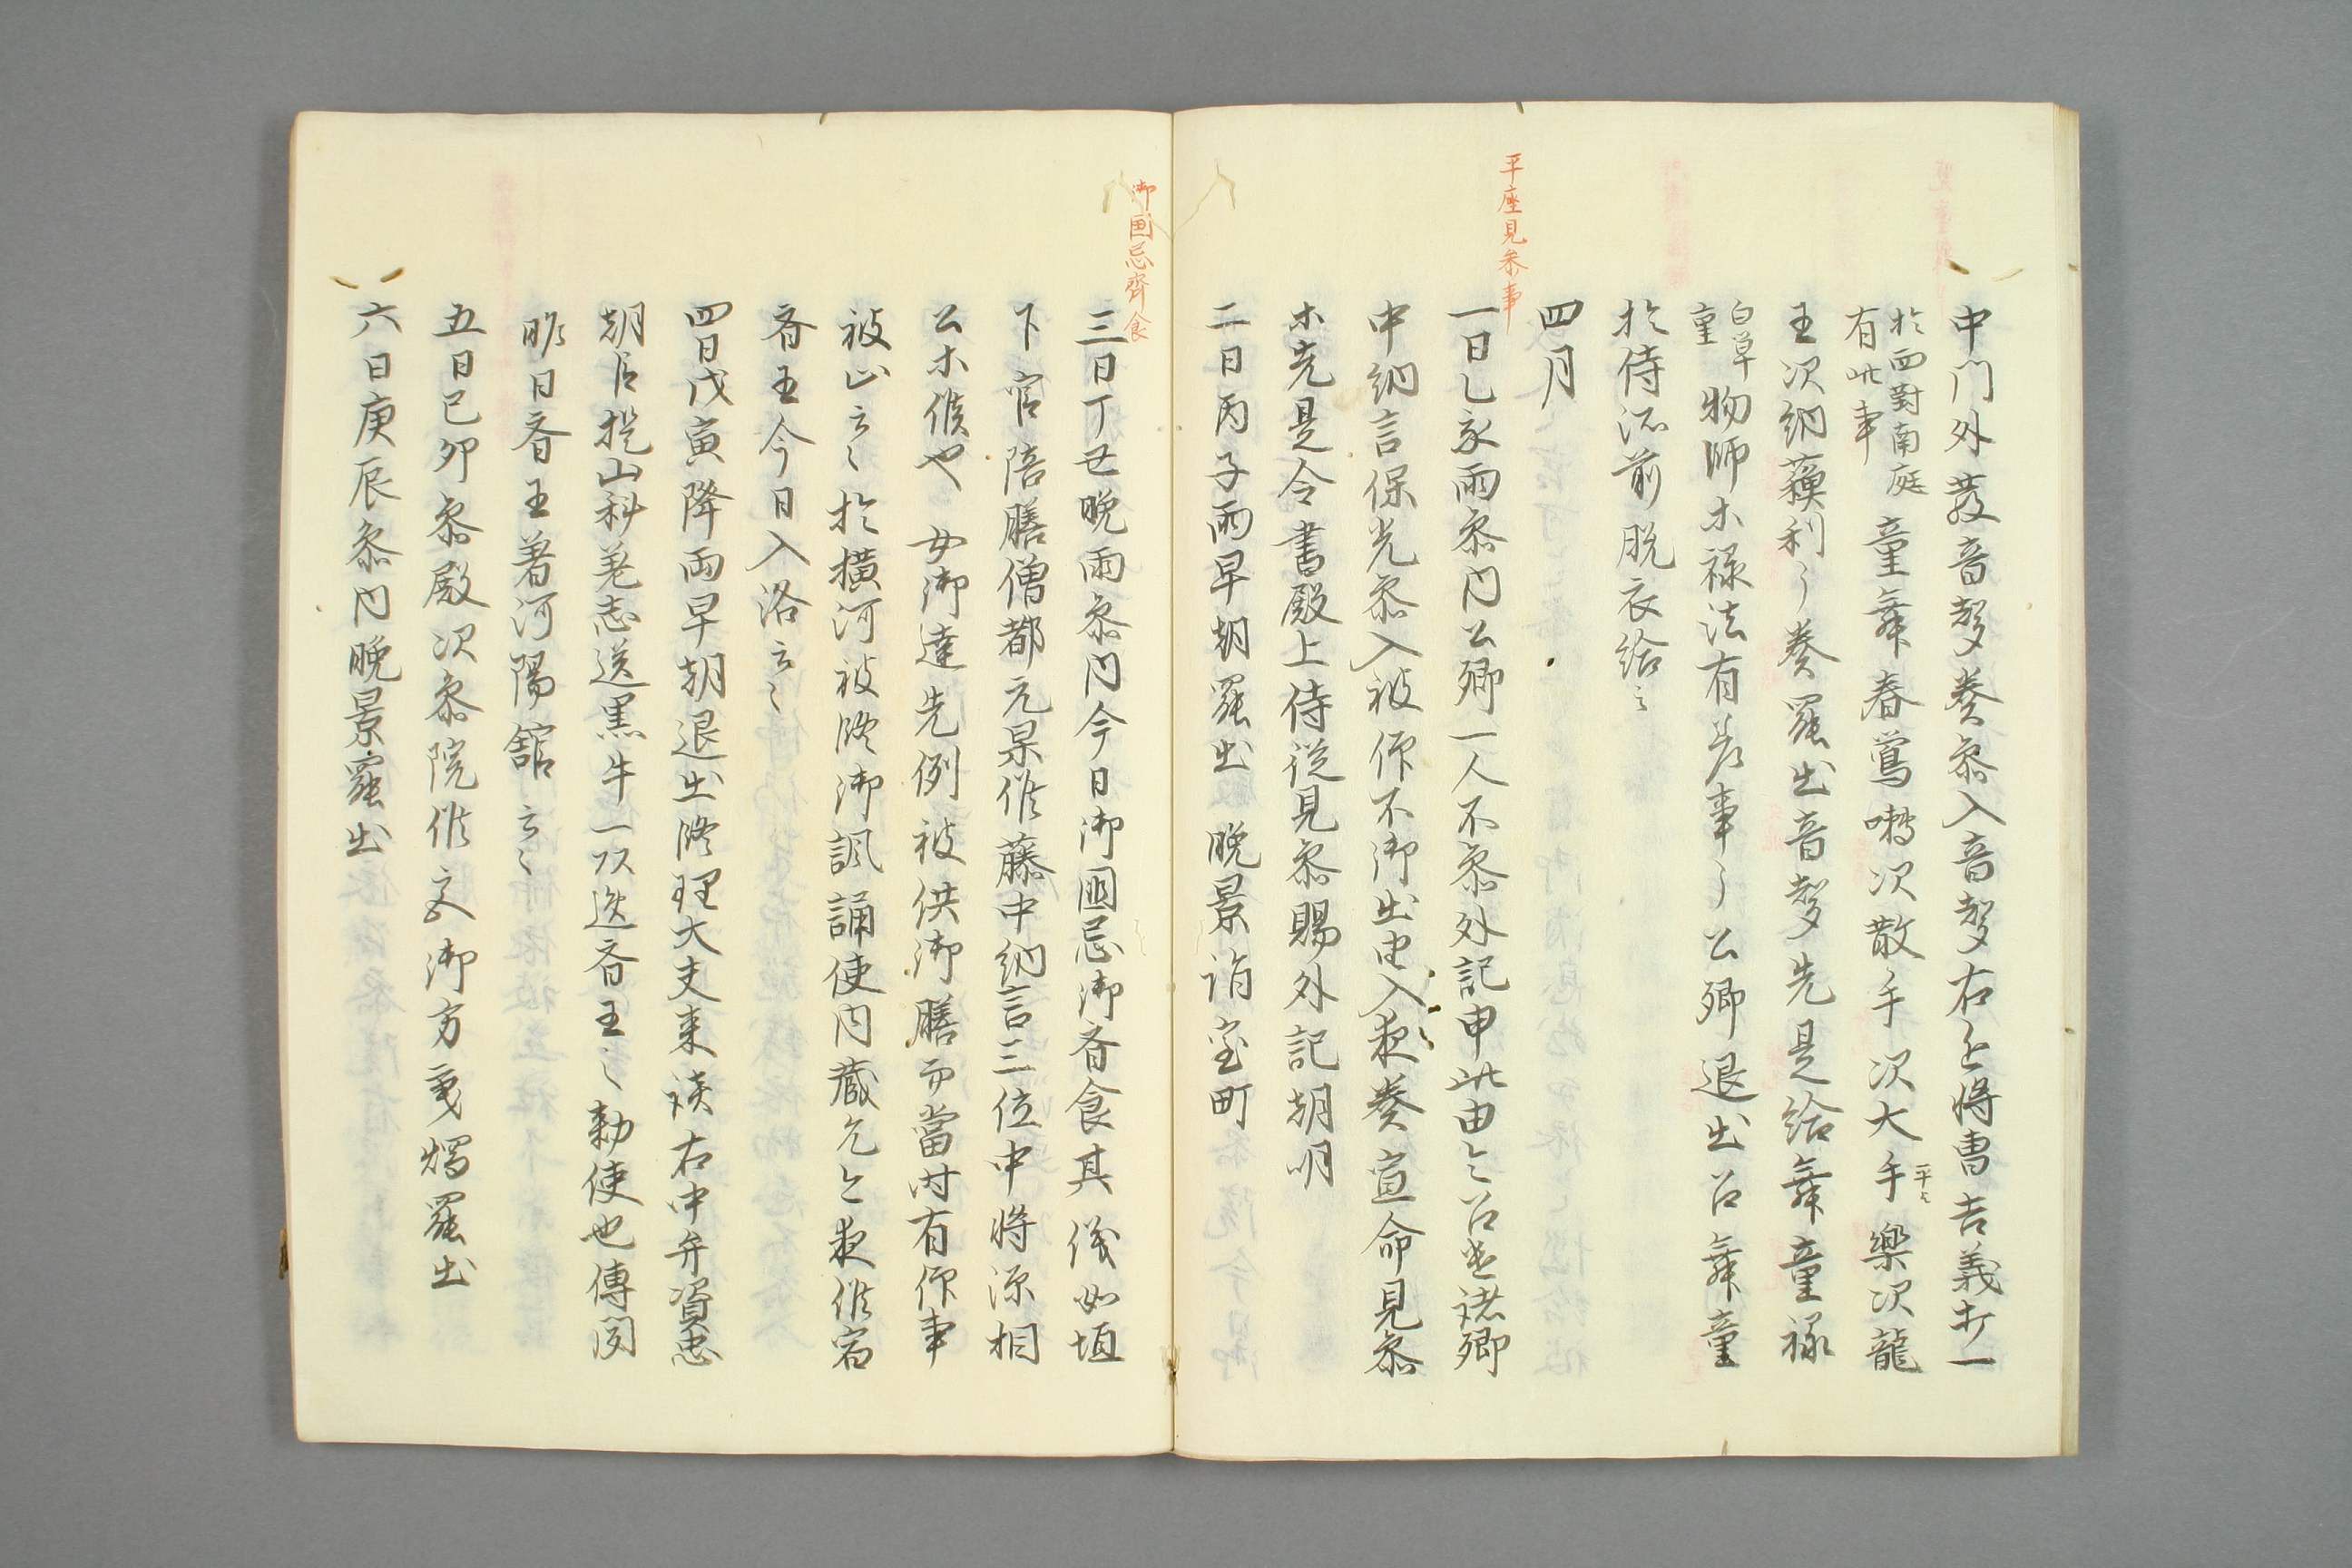 中門外發音聲奏參入音聲右近將曹吉義打一
於西對南庭
有此事
童舞春鶯囀次散手次大手樂次龍
平欤
王次納蘓利了奏罷出音聲先是給舞童祿
白單
重
物師木祿法有差事了公卿退出召舞童
於侍所前脱衣給之
四月
平座見参事
一日乙亥雨參内公卿一人不參外記申此由令召遣諸卿
中納言保光參入被仰不御出由入夜奏宣命見參
木先是令書殿上侍從見參賜外記胡明
二日丙子雨早朝罷出晩景詣室町
御国忌齊食
三日丁丑晩雨參内今日御國忌御斎食其儀如恒
下官陪膳僧都元杲候藤中納言三位中將源相
公木候也女御達先例被供御膳而當時有仰事
被止云々於横河被修御諷誦使内藏允今夜候宿
斎王今日入洛云々
四日戊寅降雨早朝退出修理大夫来談右中弁資忠
朝臣提山科老志送黒牛一頭迎斎王之勅使也傳聞
昨日斎王著河陽舘云々
五日己卯參殿次參院候女御方秉燭罷出
六日庚辰參内晩景罷出